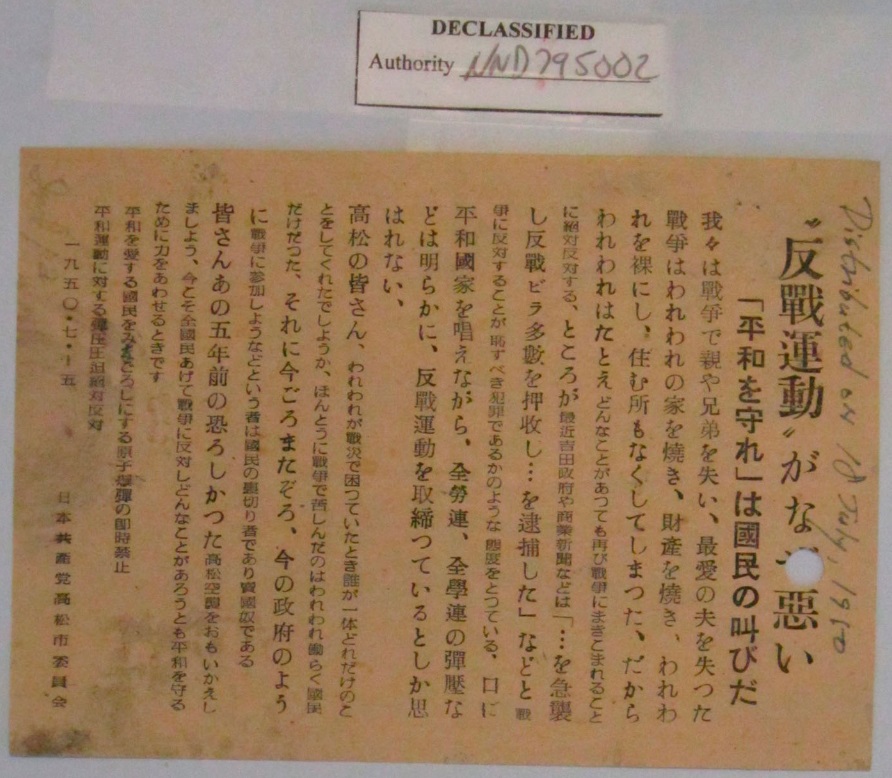 DECLASSIFIED
Authority NND795002
Distributed on 18 July, 1950
〝反戰運動〟がなぜ惡い
「平和を守れ」は國民の叫びだ
我々は戰爭で親や兄弟を失い、最愛の夫を失つた
戰爭はわれわれの家を燒き、財產を燒き、われわ
れを裸にし、住む所もなくしてしまつた、だから
われわれはたとえどんなことがあつても再び戰爭にまきこまれること
に絕対反対する、ところが最近吉田政府や商業新聞などは「…を急襲
し反戰ビラ多數を押收し…を逮捕した」などと戰
爭に反対することが恥ずべき犯罪であるかのような態度をとつている、口に
平和國家を唱えながら、全勞連、全學連の彈壓な
どは明らかに、反戰運動を取締つているとしか思
はれない、
高松の皆さん、われわれが戰災で困つていたとき誰が一体どれだけのこ
とをしてくれたでしようか、ほんとうに戰爭で苦しんだのはわれわれ働らく國民
だけだつた、それに今ごろまたぞろ、今の政府のよう
に戰爭に参加しようなどという者は國民の裏切り者であり賣國奴である
皆さんあの五年前の恐ろしかつた高松空襲をおもいかえし
ましよう、今こそ全國民あげて戰爭に反対しどんなことがあろうとも平和を守る
ために力をあわせるときです
平和を愛する國民をみなごろしにする原子爆彈の即時禁止
平和運動に対する彈圧圧迫絕対反対
一九五〇・七・十五
日本共產党高松市委員会